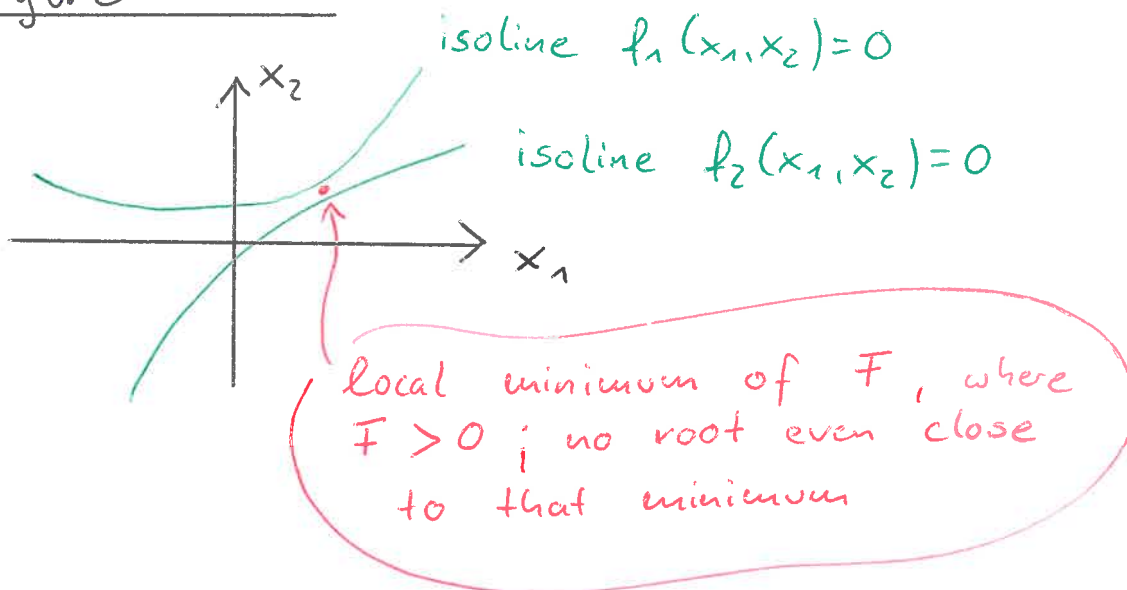 isoline f₁(x₁,x₂)=0
x₂
isoline f₂(x₁,x₂)=0
x₁
local minimum of F, where
F > 0 ; no root even close
to that minimum